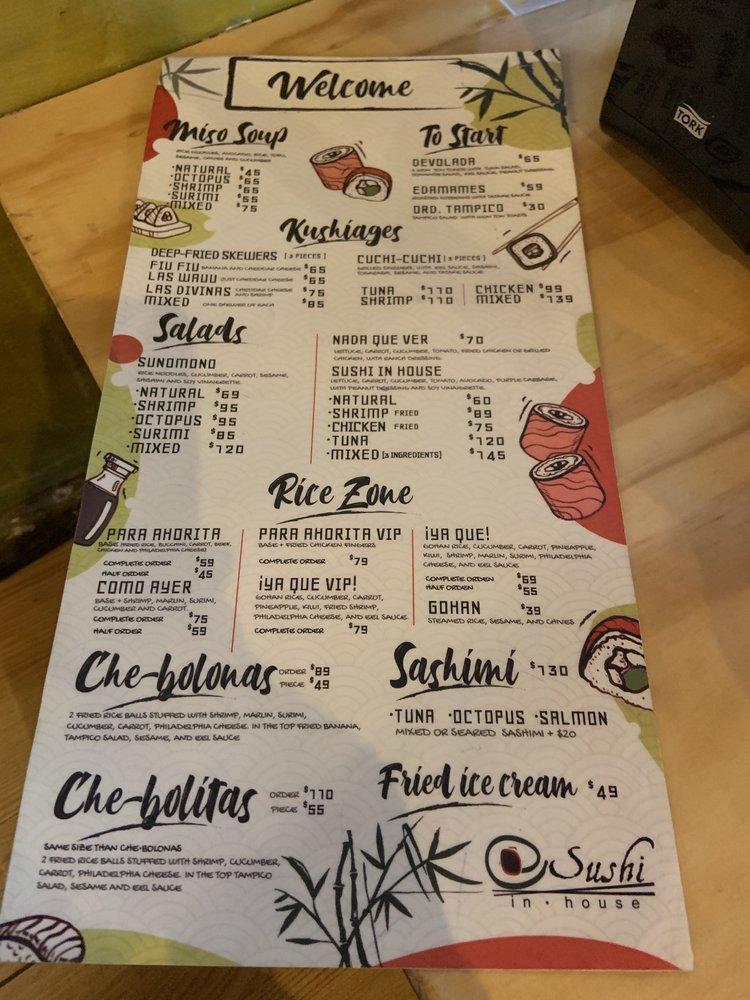 Welcome
Miso Soup
RICE NOODLES, AVOCADO, RICE, TOFU,
SESAME, CHIVES AND CUCUMBER
·NATURAL $45
·OCTOPUS $65
·SHRIMP $65
·SURIMI $55
·MIXED $75
To Start
DEVOLADA $65
EDAMAMES $59
ORD. TAMPICO $30
TAMPICO SALAD WITH WON TON TOASTS
Kushiages
DEEP-FRIED SKEWERS [3 PIECES]
FIU FIU BANANA AND CHEDDAR CHEESE $65
LAS WAUU JUST CHEDDAR CHEESE $65
LAS DIVINAS CHEDDAR CHEESE AND SHRIMP $75
MIXED ONE SKEWER OF EACH $85
CUCHI-CUCHI [3 PIECES]
GRILLED SKEWERS, WITH EEL SAUCE, SASHIMI,
TOGARASHI, SESAME, AND TATAKI SAUCE.
TUNA $110
SHRIMP $110
CHICKEN $99
MIXED $139
Salads
SUNOMONO
RICE NOODLES, CUCUMBER, CARROT, SESAME,
SASHIMI AND SOY VINAIGRETTE
·NATURAL $69
·SHRIMP $95
·OCTOPUS $95
·SURIMI $85
·MIXED $120
NADA QUE VER $70
LETTUCE, CARROT, CUCUMBER, TOMATO, FRIED CHICKEN OR GRILLED
CHICKEN, WITH RANCH DRESSING.
SUSHI IN HOUSE
LETTUCE, CARROT, CUCUMBER, TOMATO, AVOCADO, PURPLE CABBAGE,
WITH PEANUT DRESSING AND SOY VINAIGRETTE.
·NATURAL $60
·SHRIMP FRIED $89
·CHICKEN FRIED $75
·TUNA $120
·MIXED [3 INGREDIENTS] $145
Rice Zone
PARA AHORITA
BASE (FRIED RICE, ZUCCHINI, CARROT, BEEF,
CHICKEN AND PHILADELPHIA CHEESE)
COMPLETE ORDER $59
HALF ORDER $45
COMO AYER
BASE + SHRIMP, MARLIN, SURIMI,
CUCUMBER AND CARROT.
COMPLETE ORDER $75
HALF ORDER $59
PARA AHORITA VIP
BASE + FRIED CHICKEN FINGERS
COMPLETE ORDER $79
¡YA QUE VIP!
GOHAN RICE, CUCUMBER, CARROT,
PINEAPPLE, KIWI, FRIED SHRIMP,
PHILADELPHIA CHEESE, AND EEL SAUCE
COMPLETE ORDER $79
¡YA QUE!
GOHAN RICE, CUCUMBER, CARROT, PINEAPPLE,
KIWI, SHRIMP, MARLIN, SURIMI, PHILADELPHIA
CHEESE, AND EEL SAUCE
COMPLETE ORDEN $69
HALF ORDEN $55
GOHAN $39
STEAMED RICE, SESAME, AND CHIVES
Che-bolonas ORDER $89
PIECE $49
2 FRIED RICE BALLS STUFFED WITH SHRIMP, MARLIN, SURIMI,
CUCUMBER, CARROT, PHILADELPHIA CHEESE. IN THE TOP FRIED BANANA,
TAMPICO SALAD, SESAME, AND EEL SAUCE
Sashimi $130
·TUNA ·OCTOPUS ·SALMON
MIXED OR SEARED SASHIMI + $20
Che-bolitas ORDER $110
PIECE $55
SAME SIZE THAN CHE-BOLONAS
2 FRIED RICE BALLS STUFFED WITH SHRIMP, CUCUMBER,
CARROT, PHILADELPHIA CHEESE. IN THE TOP TAMPICO
SALAD, SESAME AND EEL SAUCE
Fried ice cream $49
Sushi
in·house
TORK